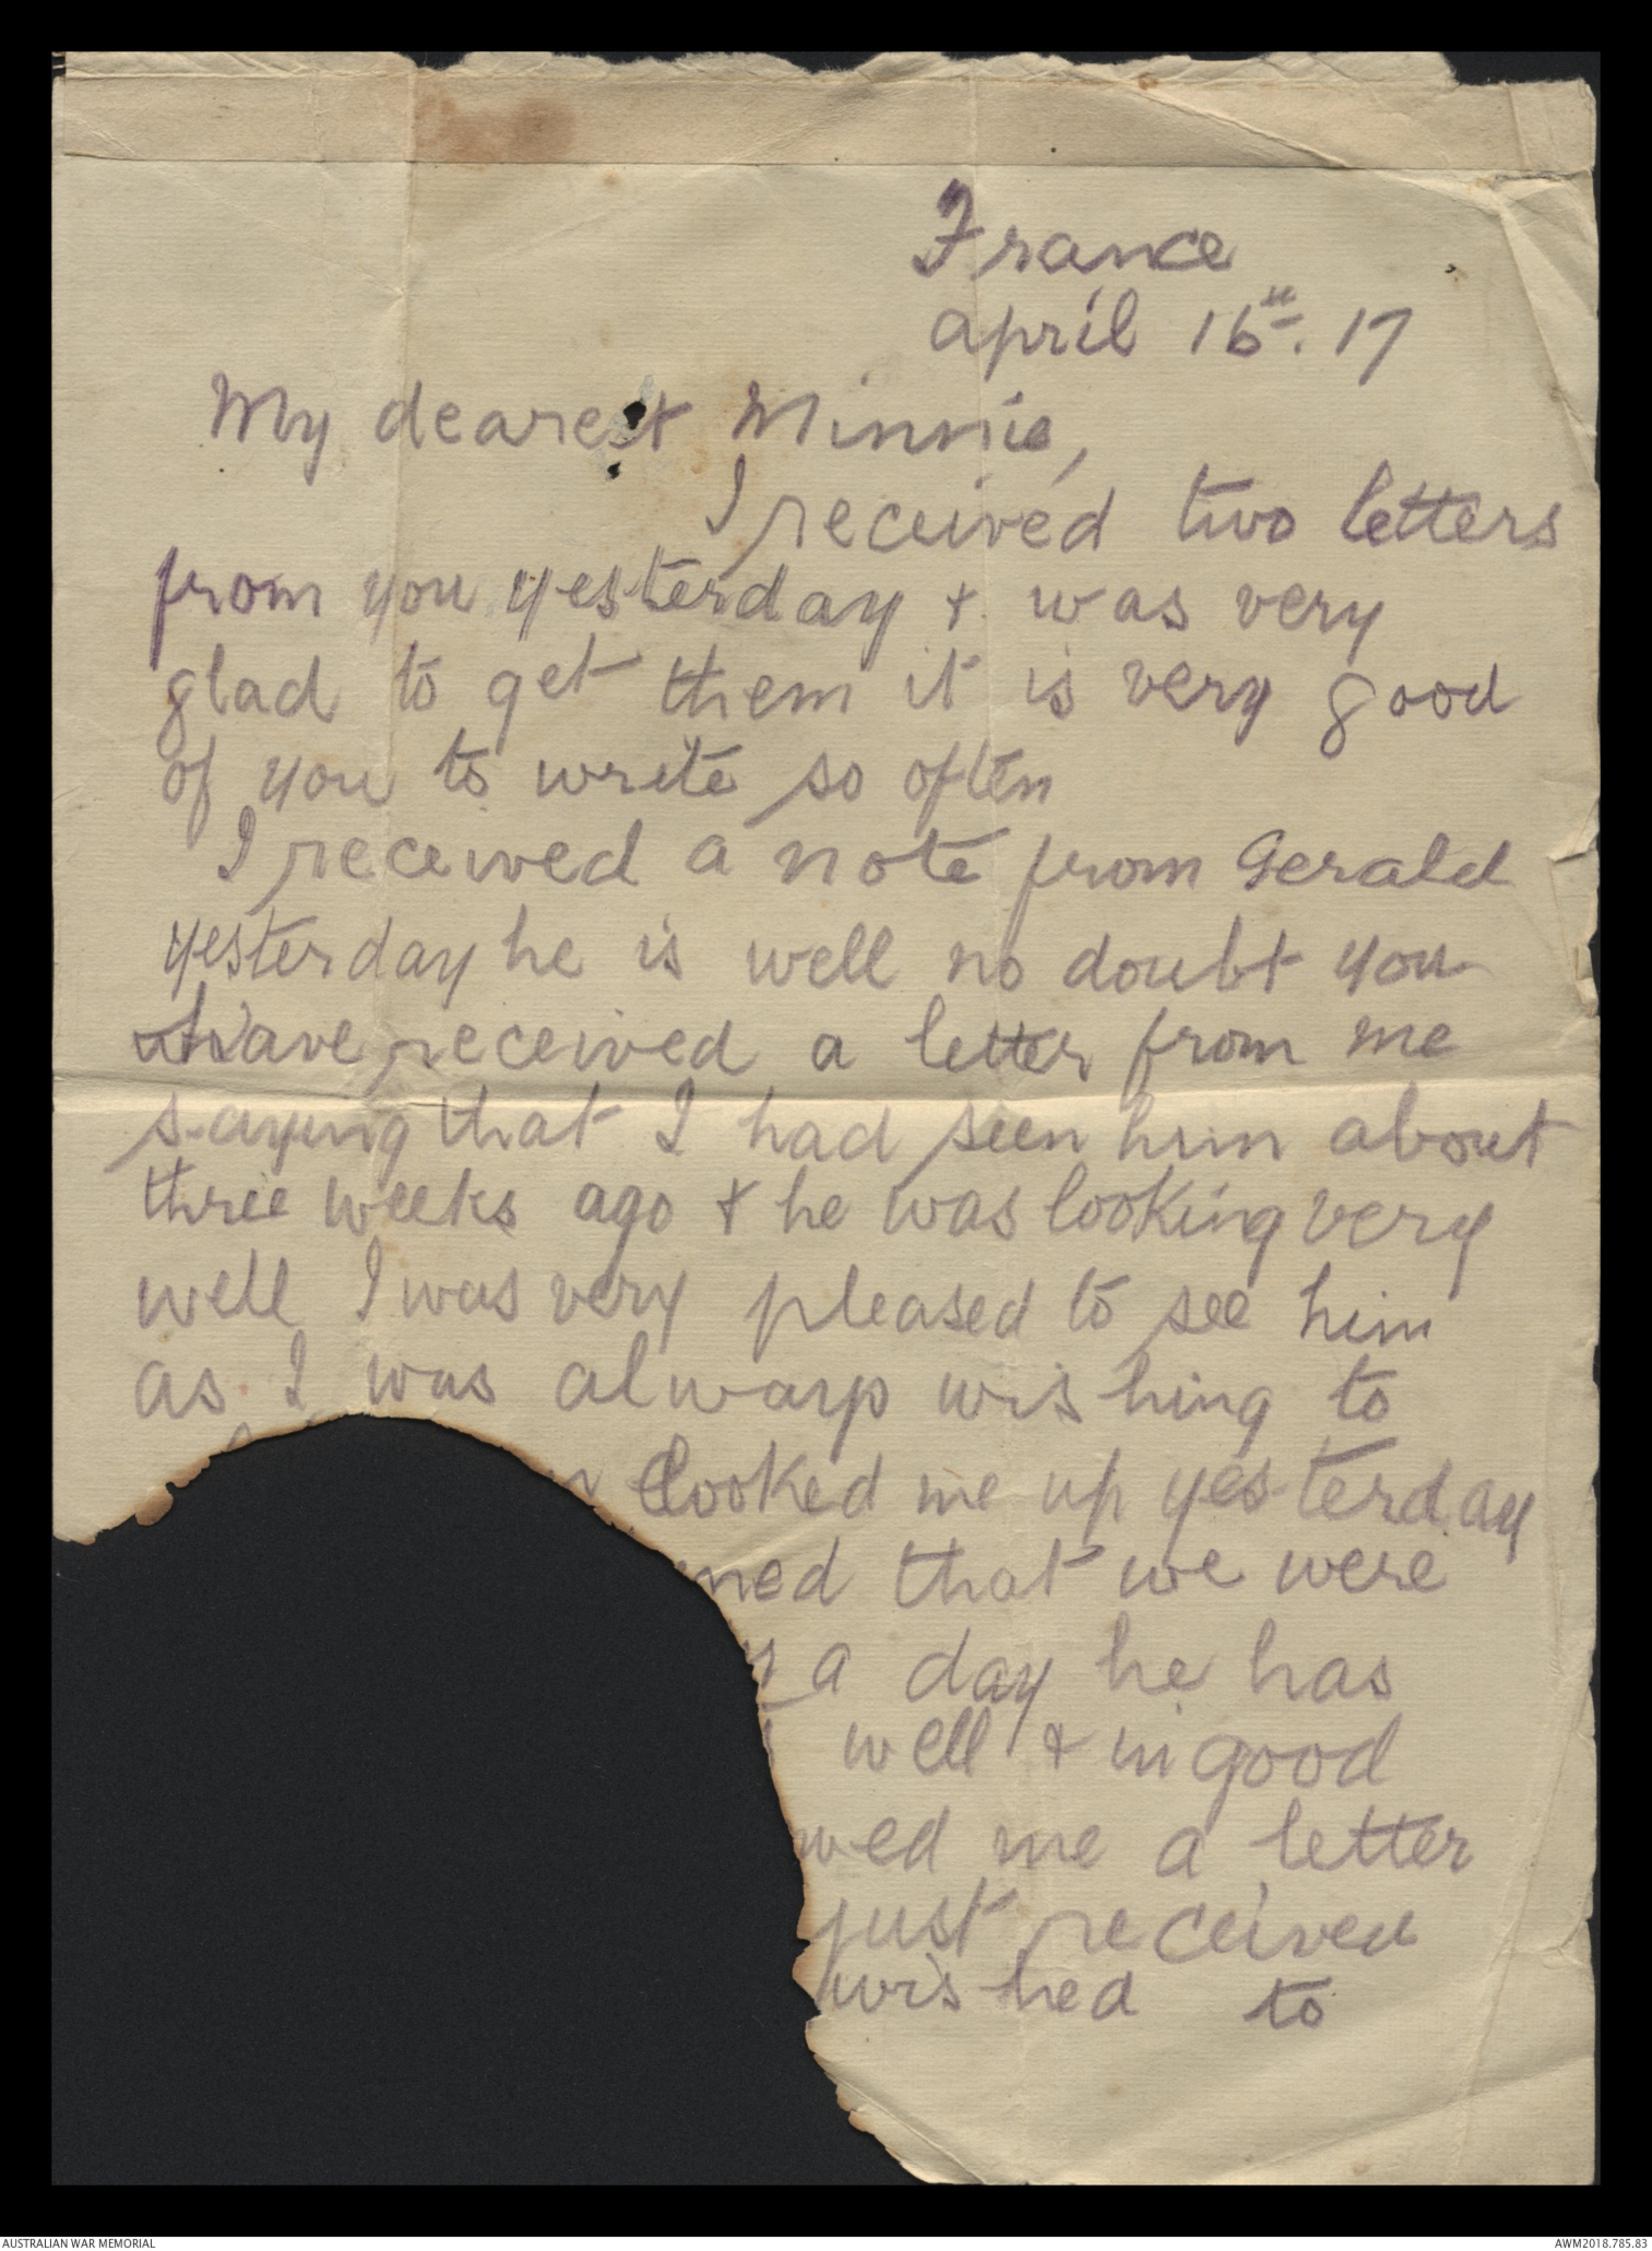 France
april 16th. 17
My dearest Minnie,
I received two letters
from you yesterday + was very
glad to get them it is very good
of you to write so often
I received a note from Gerald
yesterday he is well no doubt you
have received a letter from me
saying that I had seen him about
three weeks ago + he was looking very
well I was very pleased to see him
as I was always wishing to
looked me up yesterday
ned that we were
a day he has
well + in good
wed me a letter
just received
wished to
AUSTRALIAN WAR MEMORIAL
AWM2018.785.83